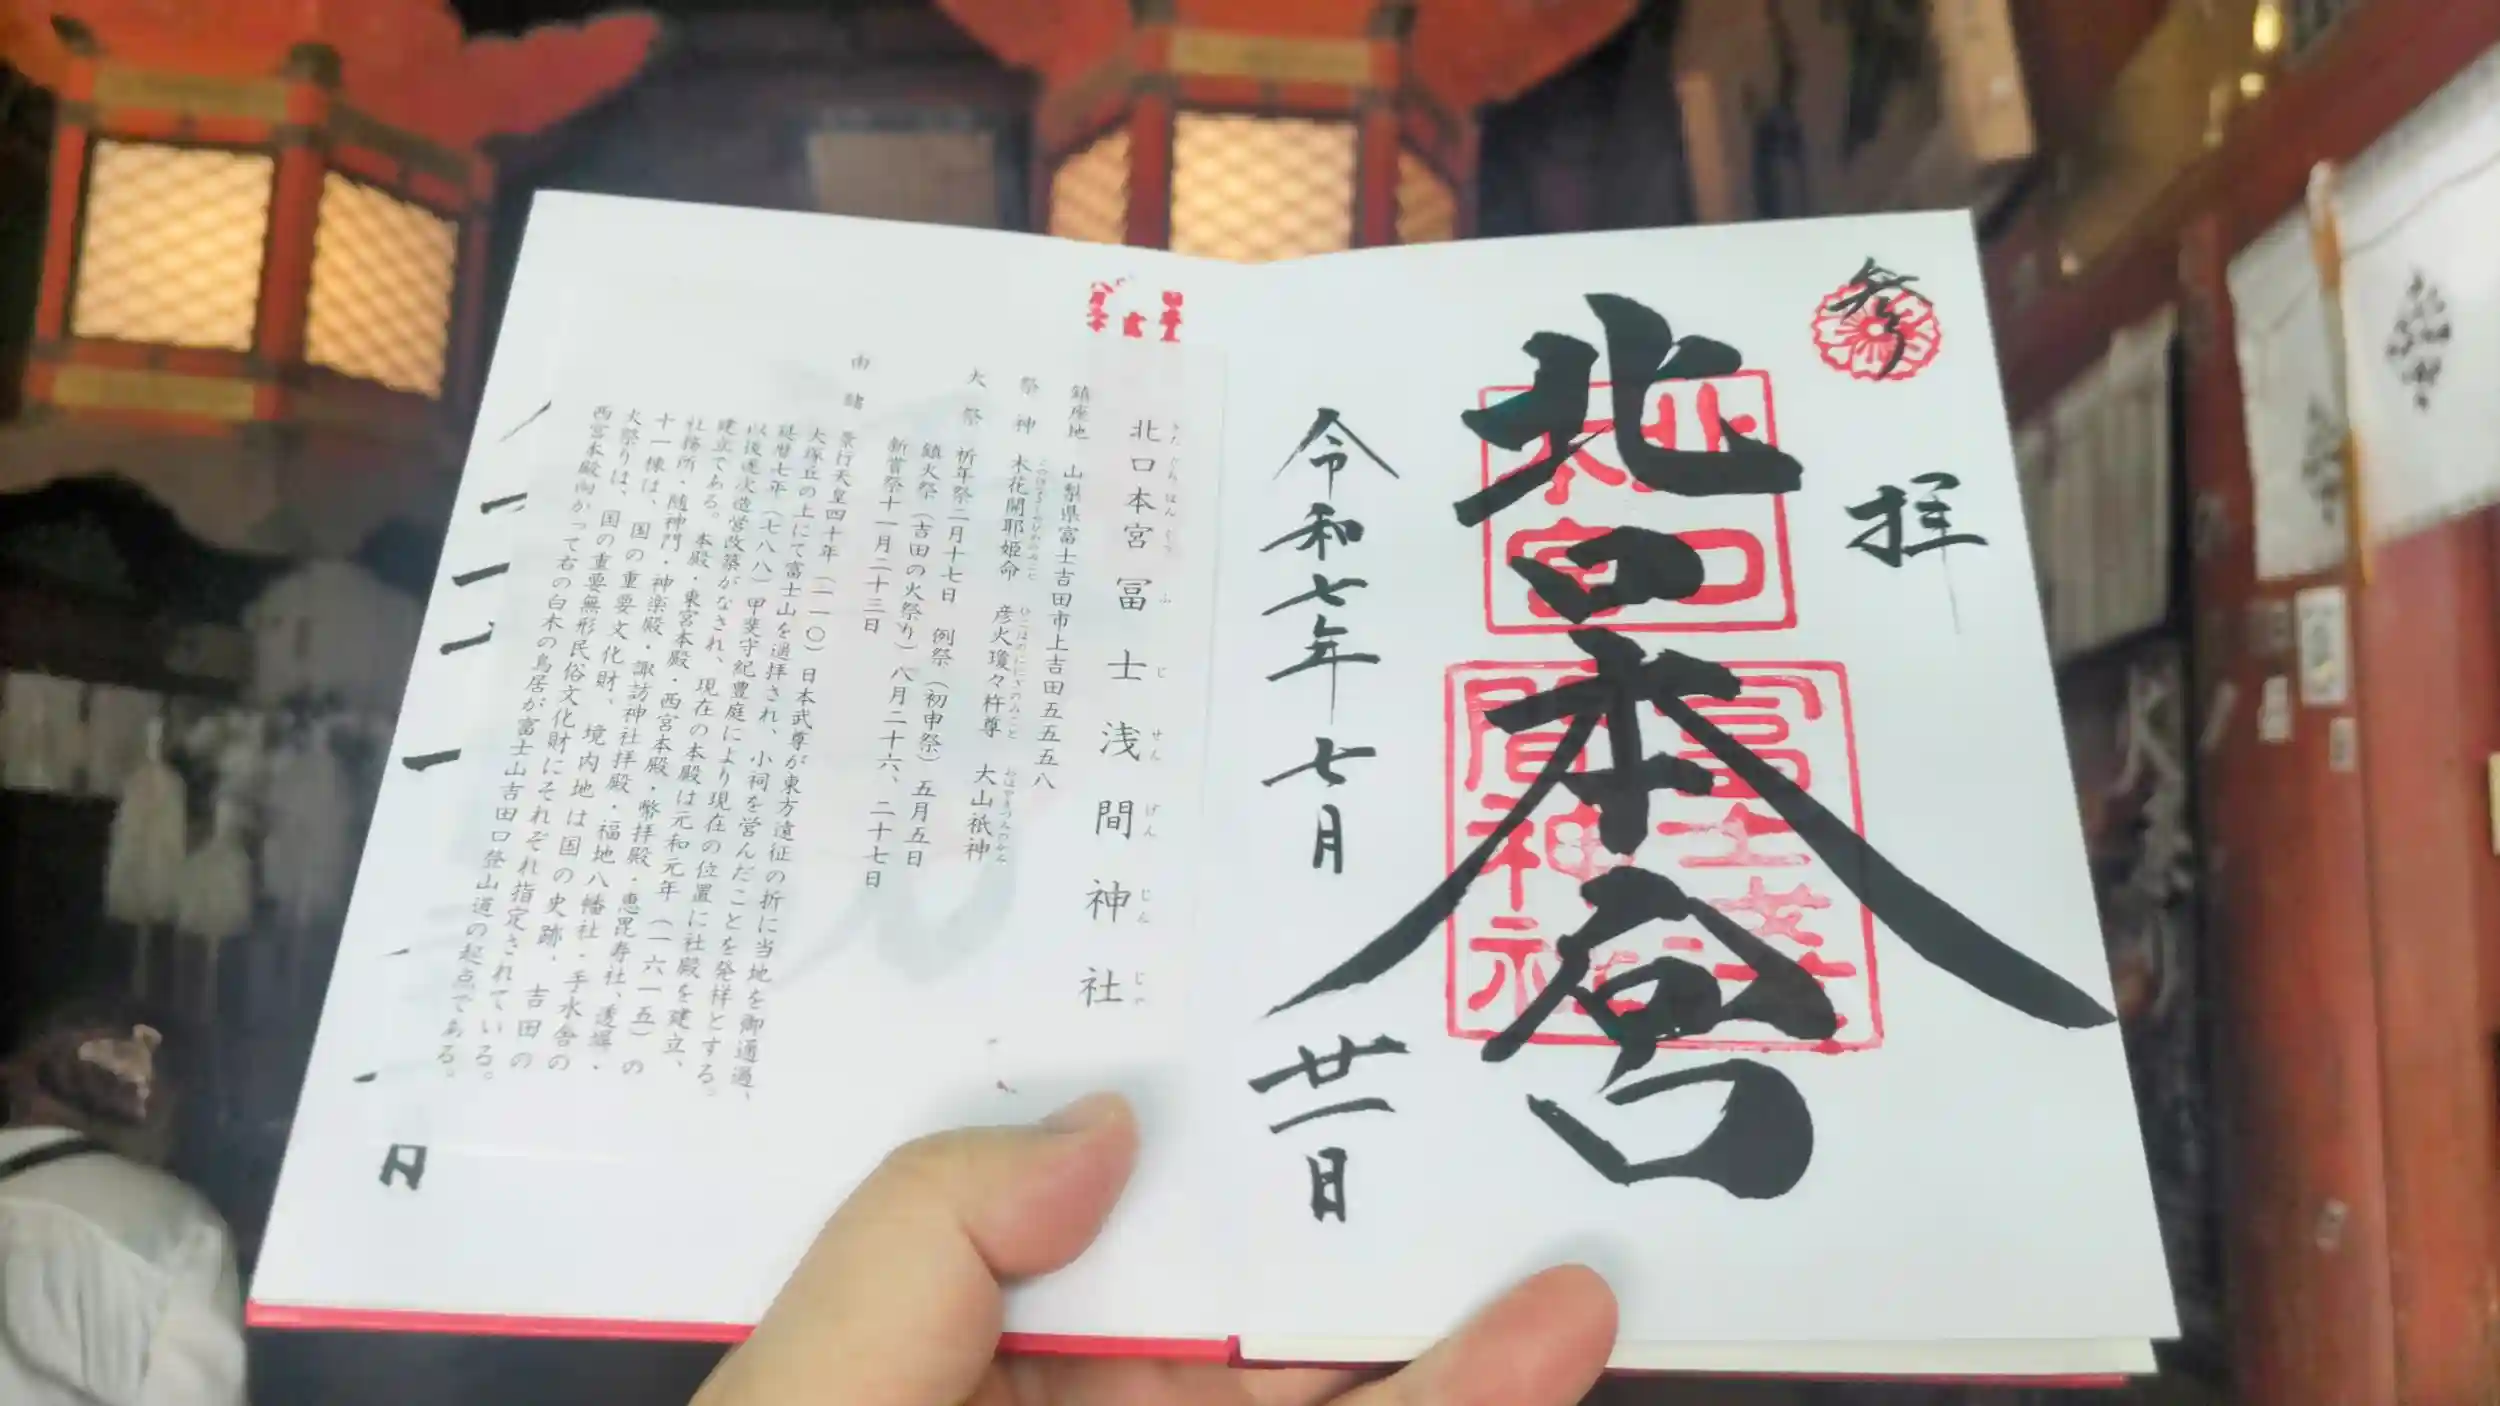 奉拝
北口本宮
北口
本宮
冨士浅
間神社
令和七年七月廿一日
北口本宮冨士浅間神社
きたぐちほんぐうふじせんげんじんじゃ
鎮座地 山梨県富士吉田市上吉田五五五八
祭神 木花開耶姫命 彦火瓊々杵尊 大山祇神
大祭 祈年祭二月十七日 例祭(初申祭)五月五日
鎮火祭(吉田の火祭り)八月二十六、二十七日
新嘗祭十一月二十三日
由緒
景行天皇四十年(一一〇)日本武尊が東方遠征の折に当地を御通過、
大塚丘の上にて富士山を遥拝され、小祠を営んだことを発祥とする。
延暦七年(七八八)甲斐守紀豊庭により現在の位置に社殿を建立、
以後逐次造営改築がなされ、現在の本殿は元和元年(一六一五)の
建立である。本殿・東宮本殿・西宮本殿・幣拝殿・恵毘寿社、透塀・
社務所・随神門・神楽殿・諏訪神社拝殿・福地八幡社・手水舎の
十一棟は、国の重要文化財、境内地は国の史跡、吉田の
火祭りは、国の重要無形民俗文化財にそれぞれ指定されている。
西宮本殿向かって右の白木の鳥居が富士山吉田口登山道の起点である。